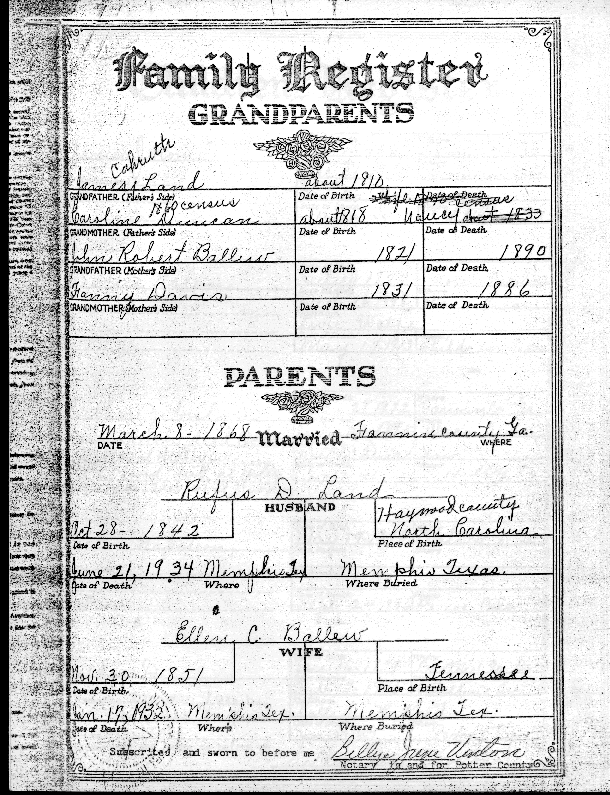 Family Register
GRANDPARENTS
Cahruth
James Land about 1810
GRANDFATHER (Father's Side) Date of Birth Date of Death
1870 census
Caroline Duncan about 1818 Nancy about 1833
GRANDMOTHER (Father's Side) Date of Birth Date of Death
John Robert Ballew 1821 1890
GRANDFATHER (Mother's Side) Date of Birth Date of Death
Fanny Davis 1831 1886
GRANDMOTHER (Mother's Side) Date of Birth Date of Death
PARENTS
March 8 - 1868 Married Fannin county Ga.
DATE WHERE
Rufus D. Land
HUSBAND
Oct 28 - 1842 Haywood county North Carolina
Date of Birth Place of Birth
June 21, 1934 Memphis Tex Memphis Texas.
Date of Death Where Where Buried
Ellen C. Ballew
WIFE
Nov. 30 - 1851 Tennessee
Date of Birth Place of Birth
Jan. 17, 1932 Memphis Tex. Memphis Tex.
Date of Death Where Where Buried
Subscribed and sworn to before me
Notary in and for Potter County